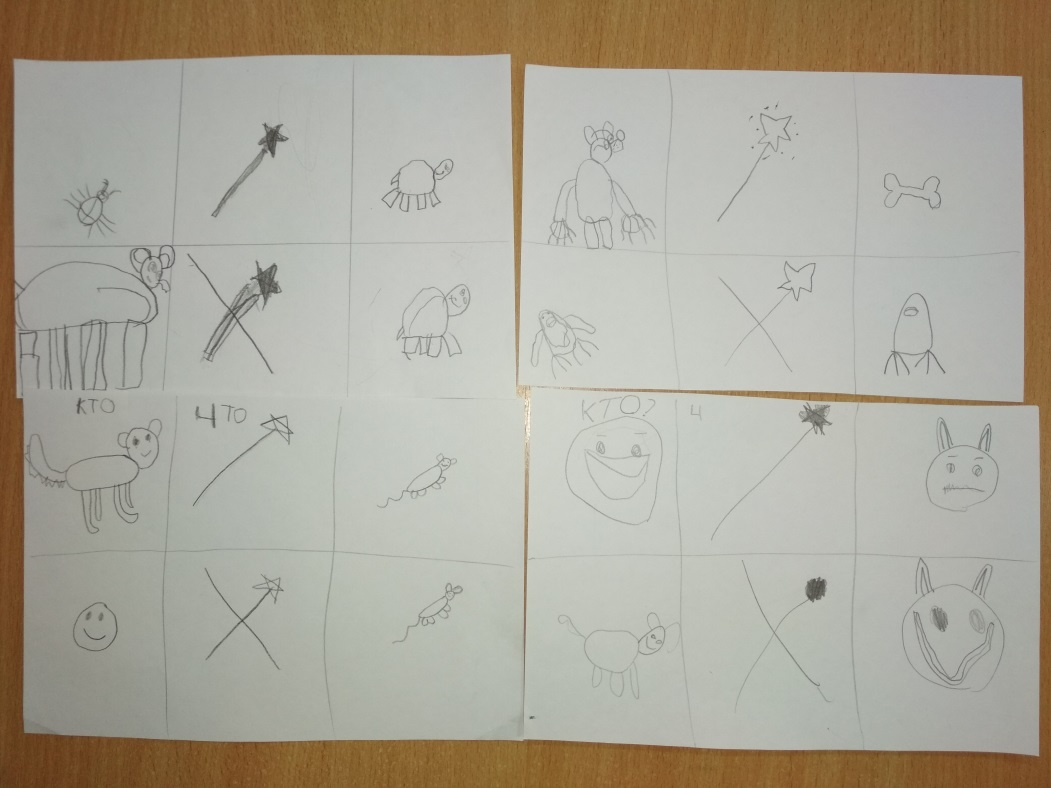 КТО
ЧТО
КТО?
Ч